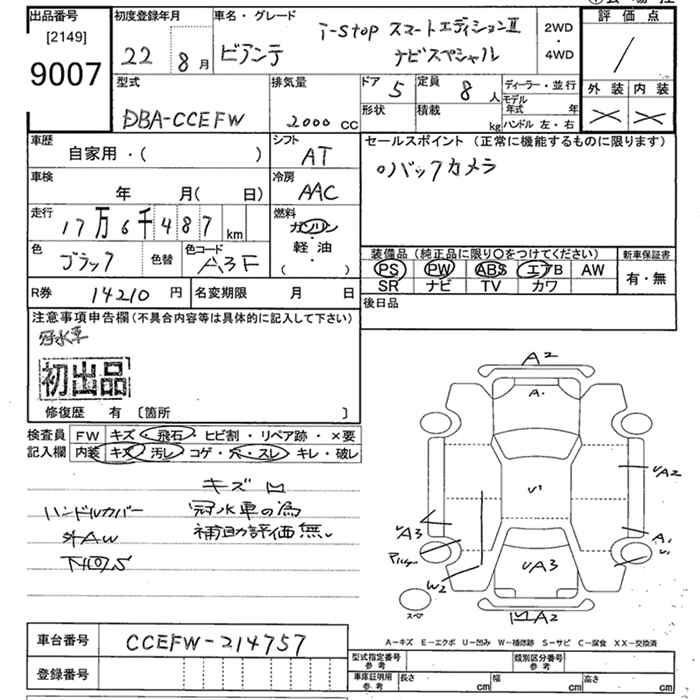 出品番号 初度登録年月 車名・グレード 評価点
[2149]
9007
22 8月 ビアンテ i-stop スマートエディションⅡ
ナビスペシャル
2WD
・
4WD
外装 内装
型式 排気量 ドア 5 定員 8人 ディーラー・並行
モデル年式 年
DBA-CCEFW 2000 cc 形状 積載 kg ハンドル 左・右
車歴 シフト セールスポイント(正常に機能するものに限ります)
自家用・( ) AT
○バックカメラ
車検 冷房
年 月( 日) AAC
走行 燃料
17万6千487km ガソリン
軽油
( )
色 ブラック 色替 色コード A3F
装備品(純正品に限り○をつけてください) 新車保証書
PS PW ABS エアB AW 有・無
SR ナビ TV カワ
R券 14210円 名変期限 月 日 後日品
注意事項申告欄(不具合内容等は具体的に記入して下さい)
冠水車
初出品
修復歴 有 〔箇所 〕
検査員 FW キズ・飛石・ヒビ割・リペア跡・×要
記入欄 内装 キズ 汚レ コゲ・穴・スレ・キレ・破レ
キズ凹
ハンドルカバー 冠水車の為
外AW 補助評価無し
A2
A・
U'
UA2
UA3
A1
U'
UA3
W2
スペ
凹A2
A-キズ E-エクボ U-凹み W-補修跡 S-サビ C-腐食 XX-交換済
車台番号 CCEFW-214757
登録番号
型式指定番号 参考 類別区分番号 参考
車庫証明用 参考 長さ cm 幅 cm 高さ cm